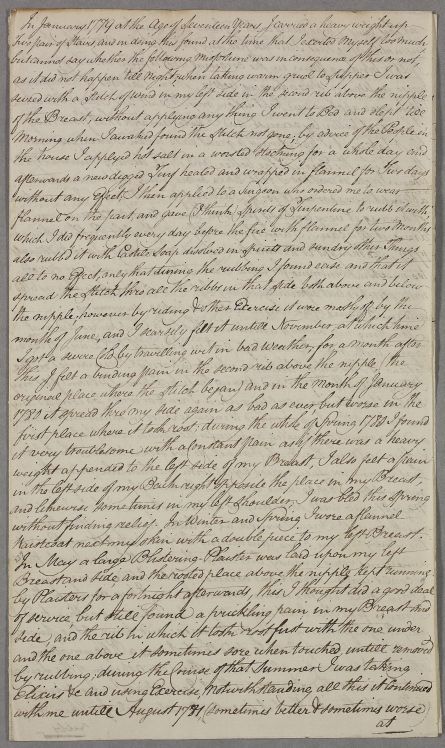 In January 1779 at the Age of Seventeen Years, I carried a heavy weight up
Two pair of Stairs and in doing this found at the time that I exerted myself too much
but cannot say whether the following misfortune was in consequence of this or not,
as it did not happen till Night when taking warm gruel to Supper I was
seized with a Stitch of wind in my left side in the second rib above the nipple
of the Breast, without applying any thing I went to Bed and slept till
Morning when I awaked found the Stitch not gone, by advice of the People in
the house I applyed hot salt in a worsted Stocking for a whole day and
afterwards a new digged Turf heated and wrapped in flannel for Two days
without any effect. I then applied to a Surgeon who ordered me to wear
flannel on the part, and gave (I think) Spirits of Turpentine to rubb it with,
which I did frequently every day before the fire with flannel for two Months
also rubbed it with Castile Soap dissolved in Spirits and sundry other Things
all to no Effect, only that during the rubbing I found ease and that it
spread the Stitch thro all the ribbs in that side both above and below
the nipple, however by riding & other Exercise it wore mostly off by the
month of June, and I scarsely felt it untill November, at which time
I got a severe Cold by travelling wet in bad weather, for a month after
this I felt a binding pain in the second rib above the nipple (the
original place where the Stitch began) and in the Month of January
1780 it spread thro my side again as bad as ever but worse in the
first place where it took root; during the whole of Spring 1780 I found
it very troublesome with a constant pain as if there was a heavy
weight appended to the left side of my Breast, I also felt a pain
in the left side of my Back right opposite the place in my Breast,
and likewise sometimes in my left Shoulder, I was bled this Spring
without finding relief. In Winter and Spring I wore a flannel
Waistcoat next my skin with a double piece to my left Breast.
In May a large Blistering Plaster was laid upon my left
Breast and side and the rooted place above the nipple kept running
by Plaisters for a fortnight afterwards, this I thought did a good deal
of service, but still found a prickling pain in my Breast and
side, and the rib in which it took root first with the one under
and the one above it sometimes sore when touched untill removed
by rubbing; during the Course of that Summer I was taking
Elixirs &c and using Exercise, Notwithstanding all this it Continued
with me untill August 1781, (sometimes better & sometimes worse
at